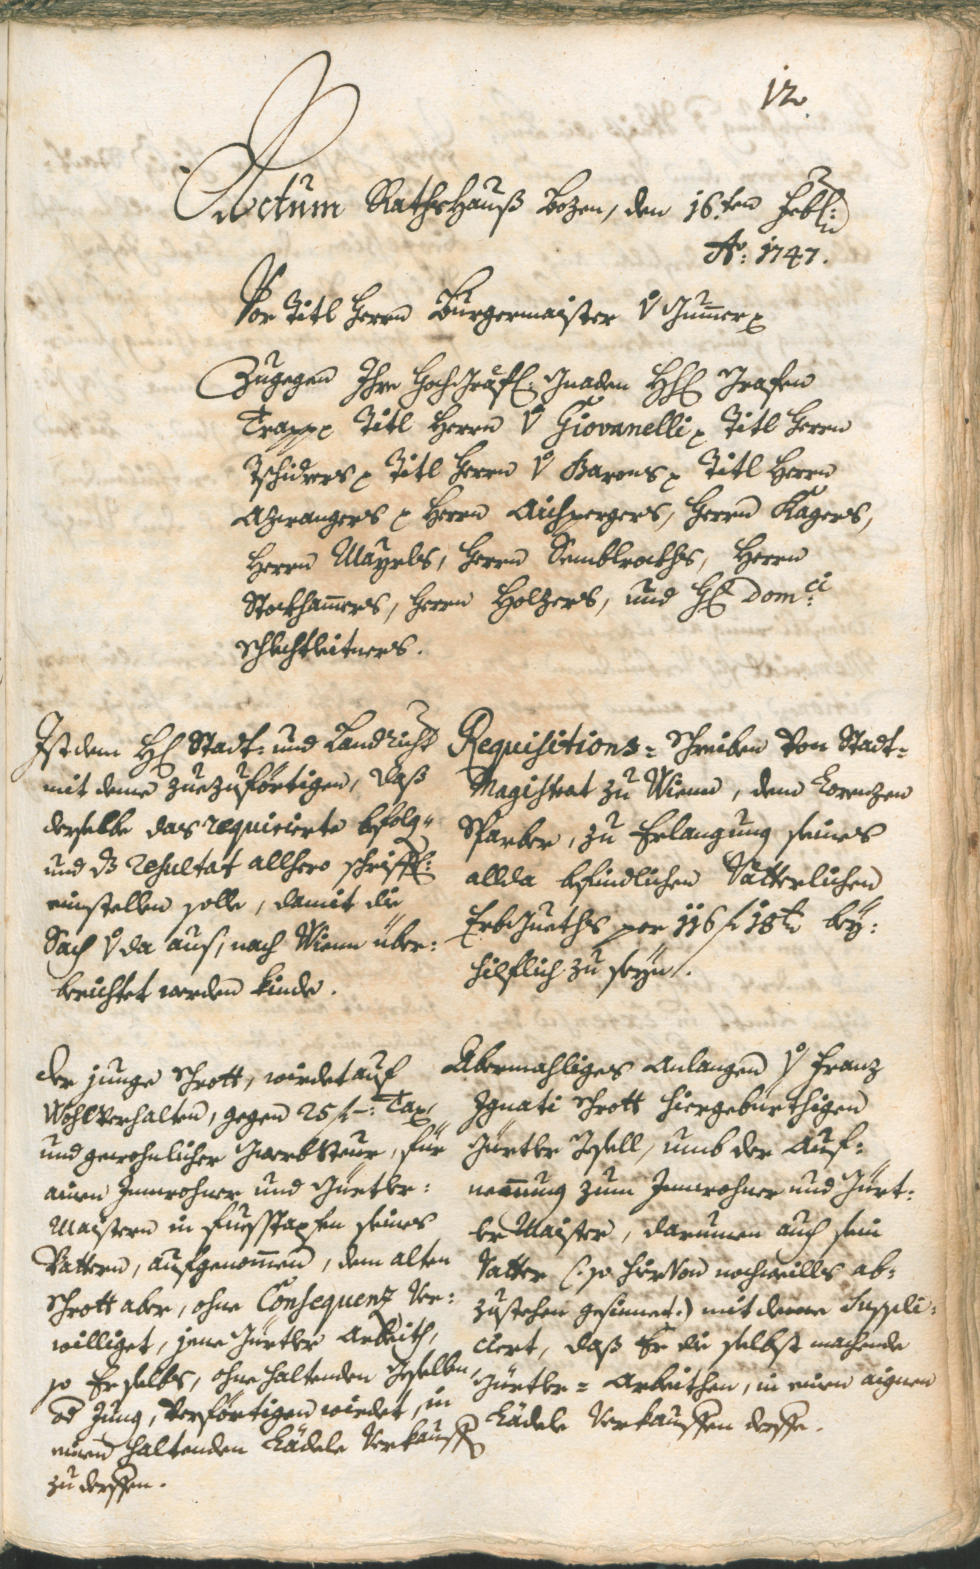 12.
Actum RathsHauß Bozen, den 16.ten Febr:
Ao: 1747.
Vor Titl Herrn Burgermaister v Gum̄er
Zugegen Ihro Hochgräfl: Gnaden HH Grafen
Trapp Titl Herrn v Giovanelli Titl Herrn
Tschiders Titl Herrn v Barens Titl Herrn
Azwangers Herrn Aichpergers, Herrn Kagers,
Herrn Mayrls, Herrn Semblroths, Herrn
Stockham̄ers, Herrn Holzers, und H Domci:
Schlechtleitners.
Ist dem H Stadt- und Landricht
mit deme zuezuförtigen, daß
derselbe das requirirte befolg-
und ds resultat allhero schrifftl:
einstellen solle, damit die
Sach v da aus, nach Wienn über-
berichtet werden kinde.
Requisitions-Schreiben von Stadt-
Magistrat zu Wienn, dem Lorenzen
Sparber, zu Erlangung seines
allda befindlichen Vätterlichen
ErbGueths per 116 f 18 bey-
hilflich zu seyn.
Der junge Schrott, wirdet auf
Wohlverhalten, gegen 25 f -: Tax,
und gewohnlicher Gwerbsteur, für
ainen Innwohner und Gürtler-
Maistern in Fuesstapfen seines
Vattern, aufgenom̄en, dem alten
Schrott aber, ohne Consequenz ver-
williget, jene Gürtler Arbeith,
so Er selbs, ohne haltenden Gesellen
od Jung, verförtigen wirdet, in
einen haltenden Lädele verkauffen
zu derffen.
Abermahliges Anlangen v Franz
Ignati Schrott hiergebürthigen
Gürtler Gesell, umb der Auf-
nem̄ung zum Innwohner und Gürt-
ler Maister, darumen auch sein
Vatter (: so hirvon nochwills ab-
zustehen gesinnet :) mit deme Suppli-
ciert, daß Er die selbst machende
Gürtler-Arbeithen, in einen aignen
Lädele verkauffen derffe.